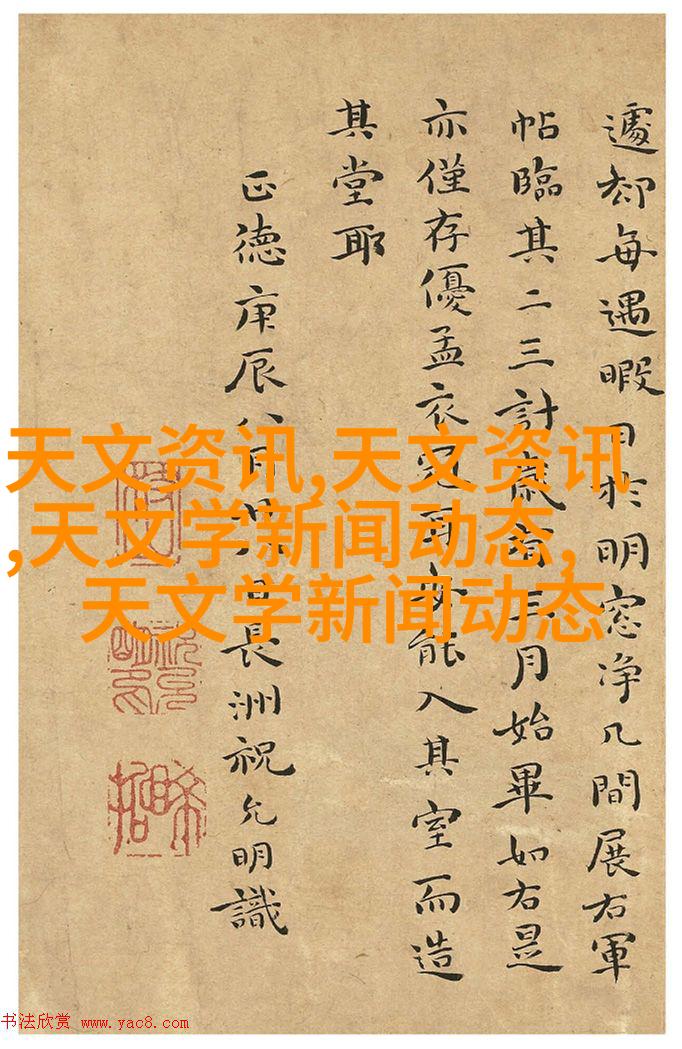 遽却每遇暇日於明窓净几間展右軍
帖臨其二三計歲三月始畢如右是
亦僅存優孟衣冠耳安能入其室而造
其堂耶
正德庚辰八月廿日長洲祝允明識
天文资讯,天文资讯
,天文学新闻动态,
天文学新闻动态
书法欣赏 www.yac8.com